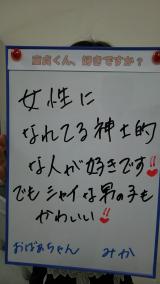 童貞くん、好きですか？
女性に
なれてる紳士的
な人が好きです!!
でもシャイな男の子も
かわいい!!
おばあちゃん　みか